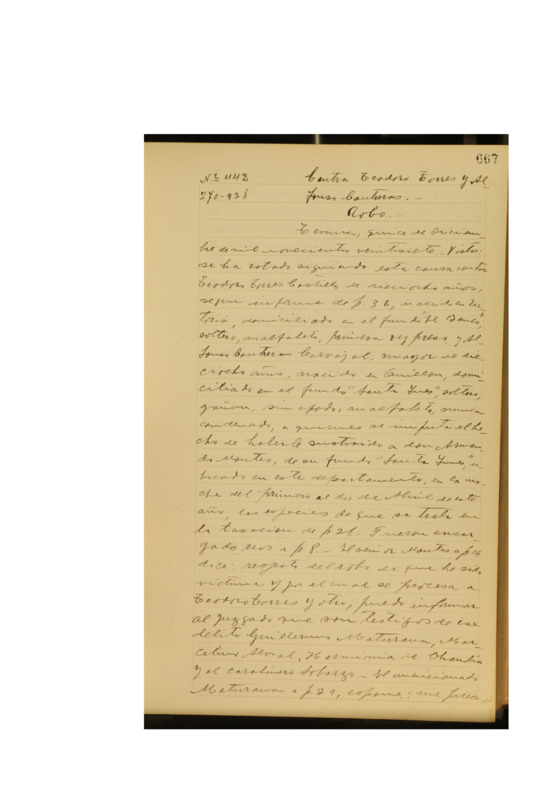 667
Nº 1142 Contra Teodoro Torres y Al
270-928 fonso Contreras. -
Robo. -
Temuco, quince de Diciem-
bre de mil novecientos veintisiete. Vistos:
se ha estado siguiendo esta causa contra
Teodoro Torres Castillo de dieciocho años,
segun informe de p. 36, nacido en Vic
toria, domiciliado en el fundo "El
soltero, analfabeto, primera vez preso, y Al-
fonso Contreras Carvajal, mayor de die
ciocho años, nacido en Quillon, domi
ciliado en el fundo "Santa Ines", soltero,
gañan, sin apodo, analfabeto, nunca
condenado, a quienes se imputa el he-
cho de haberle sustraido a don Aman
do Montes, de su fundo "Santa Ines", u
bicado en este departamento, en la no-
che del primero al dos de Abril de este
año, las especies de que se trata en
la tasacion de p. 21. Fueron encar-
gados reos a p 8. - El señor Montes a p 14
dice: respeto del robo de que he sido
victima y por el cual se procesa a
Teodoro Torres y otro, puedo informar
al juzgado que son testigos de ese
delito Guillermo Maturana, Mar-
celino Moral, Herminia de
y el carabinero - El mencionado
Maturana a p. 29, espone: me parece